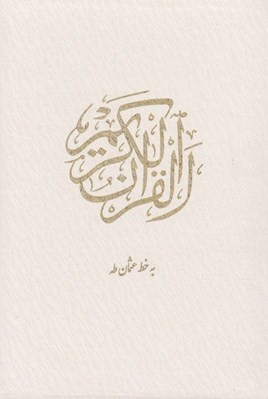 القرآن الكريم
به خط عثمان طه